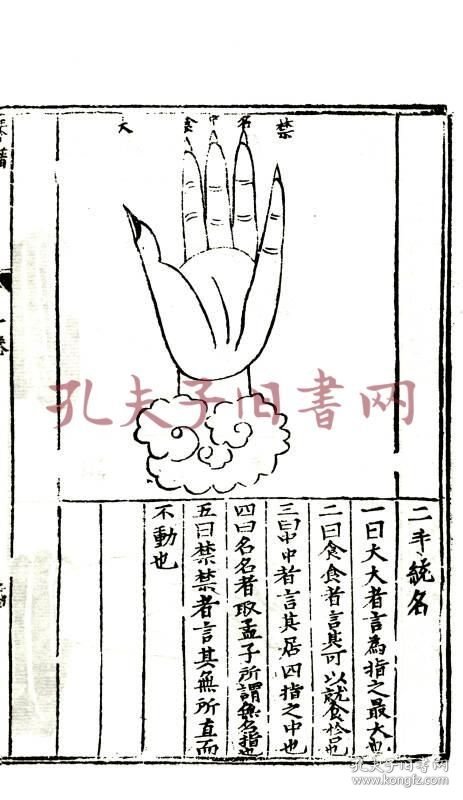 禁
名
中
食
大
二手統名
一曰大大者言為指之最大也
二曰食食者言其可以就食恰也
三曰中中者言其居四指之中也
四曰名名者取孟子所謂無名指也
五曰禁禁者言其無所直而
不動也
一卷
孔夫子旧书网
孔夫子旧书网